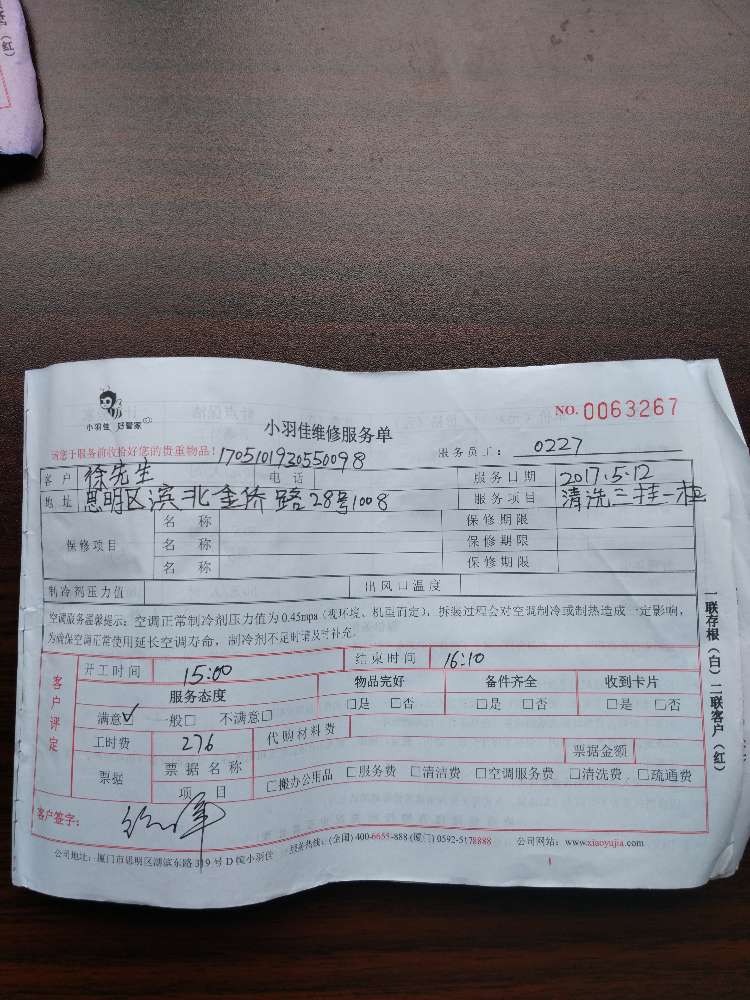 (红)
小羽佳 好管家
NO. 0063267
小羽佳维修服务单
请您于服务前收拾好您的贵重物品! 1705101930550098 服务员工: 0227
客户 徐先生 电话 服务日期 2017.5.12
地址 思明区滨北金侨路28号1008 服务项目 清洗三挂一柜
保修项目 名称 保修期限
名称 保修期限
名称 保修期限
制冷剂压力值 出风口温度
空调服务温馨提示: 空调正常制冷剂压力值为 0.45mpa (视环境、机型而定), 拆装过程会对空调制冷或制热造成一定影响,
为确保空调正常使用延长空调寿命, 制冷剂不足时请及时补充.
客户评定 开工时间 15:00 结束时间 16:10
服务态度 物品完好 备件齐全 收到卡片
满意✓ 一般□ 不满意□ □是 □否 □是 □否 □是 □否
工时费 276 代购材料费
票据金额
票据 票据名称 □搬办公用品 □服务费 □清洁费 □空调服务费 □清洗费 □疏通费
项目
客户签字:
公司地址: 厦门市思明区湖滨东路319号D幢小羽佳 服务热线: (全国) 400-6655-888 (厦门) 0592-5178888 公司网站: www.xiaoyujia.com
一联存根(白) 二联客户(红)